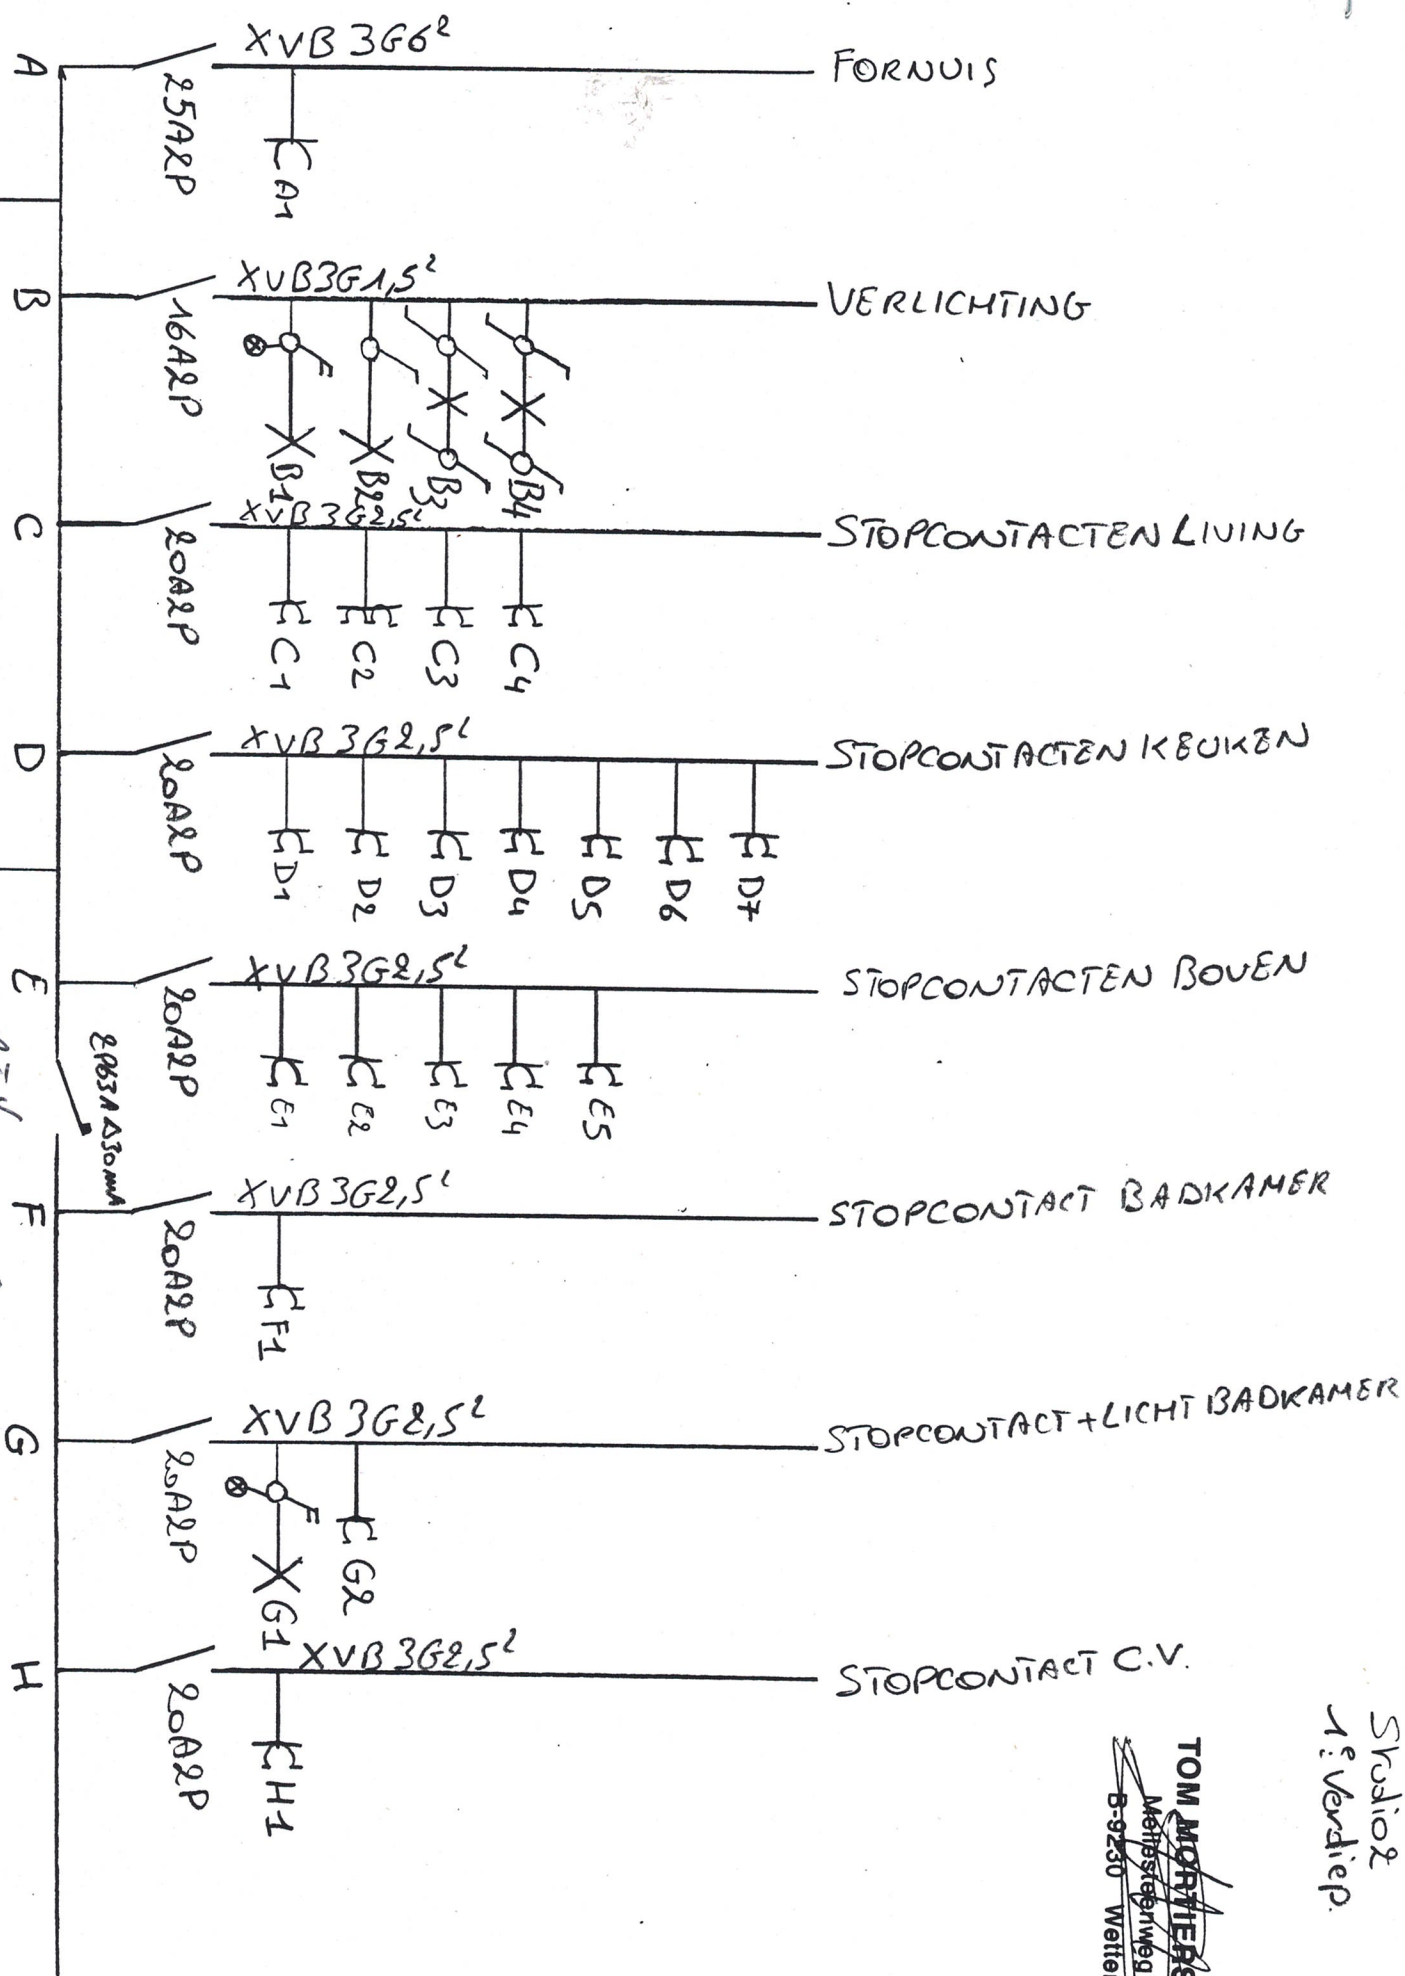 A
25A2P
XVB 3G6²
FORNUIS
A1
B
16A2P
XVB3G1,5²
VERLICHTING
B1
B2
B3
B4
C
20A2P
XVB 3G2,5²
STOPCONTACTEN LIVING
C1
C2
C3
C4
D
20A2P
XVB 3G2,5²
STOPCONTACTEN KEUKEN
D1
D2
D3
D4
D5
D6
D7
E
20A2P
XVB 3G2,5²
STOPCONTACTEN BOVEN
E1
E2
E3
E4
E5
2P63A Δ30mA
F
20A2P
XVB 3G2,5²
STOPCONTACT BADKAMER
F1
G
20A2P
XVB 3G2,5²
STOPCONTACT + LICHT BADKAMER
G1
G2
H
20A2P
XVB 3G2,5²
STOPCONTACT C.V.
H1
Studio2
1e Verdiep.
TOM MORTIERS
Mellesteenweg
B-9230 Wetter